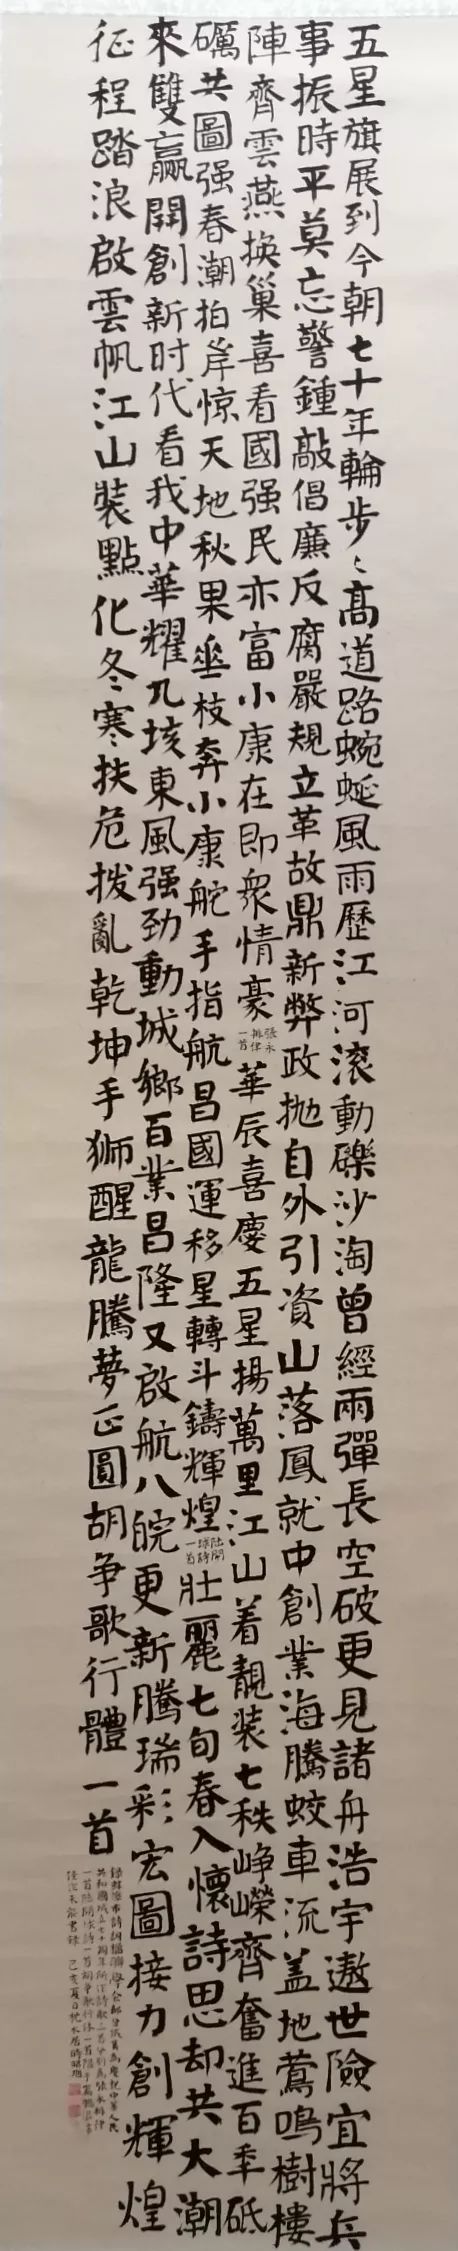 五星旗展到今朝七十年輪步々高道路蜿蜒風雨歷江河滚動礫沙淘曾經雨彈長空破更見諸舟浩宇遨世險宜將兵
事振時平莫忘警鍾敲倡廉反腐嚴規立革故鼎新弊政抛自外引資山落鳳就中創業海騰蛟車流盖地鶯鳴樹樓
陣齊雲燕换巢喜看國强民亦富小康在即衆情豪
張永
排律
一首
華辰喜慶五星揚萬里江山着靚装七秩峥嶸齊奮進百年砥
礪共圖强春潮拍岸惊天地秋果垂枝奔小康舵手指航昌國運移星轉斗鑄輝煌
陆開
球詩
一首
壯麗七旬春入懷詩思却共大潮
來雙贏開創新时代看我中華耀九垓東風强劲動城鄉百業昌隆又啟航八皖更新騰瑞彩宏圖接力創輝煌
征程踏浪啟雲帆江山裝點化冬寒扶危拨亂乾坤手狮醒龍騰夢正圓胡争歌行體一首